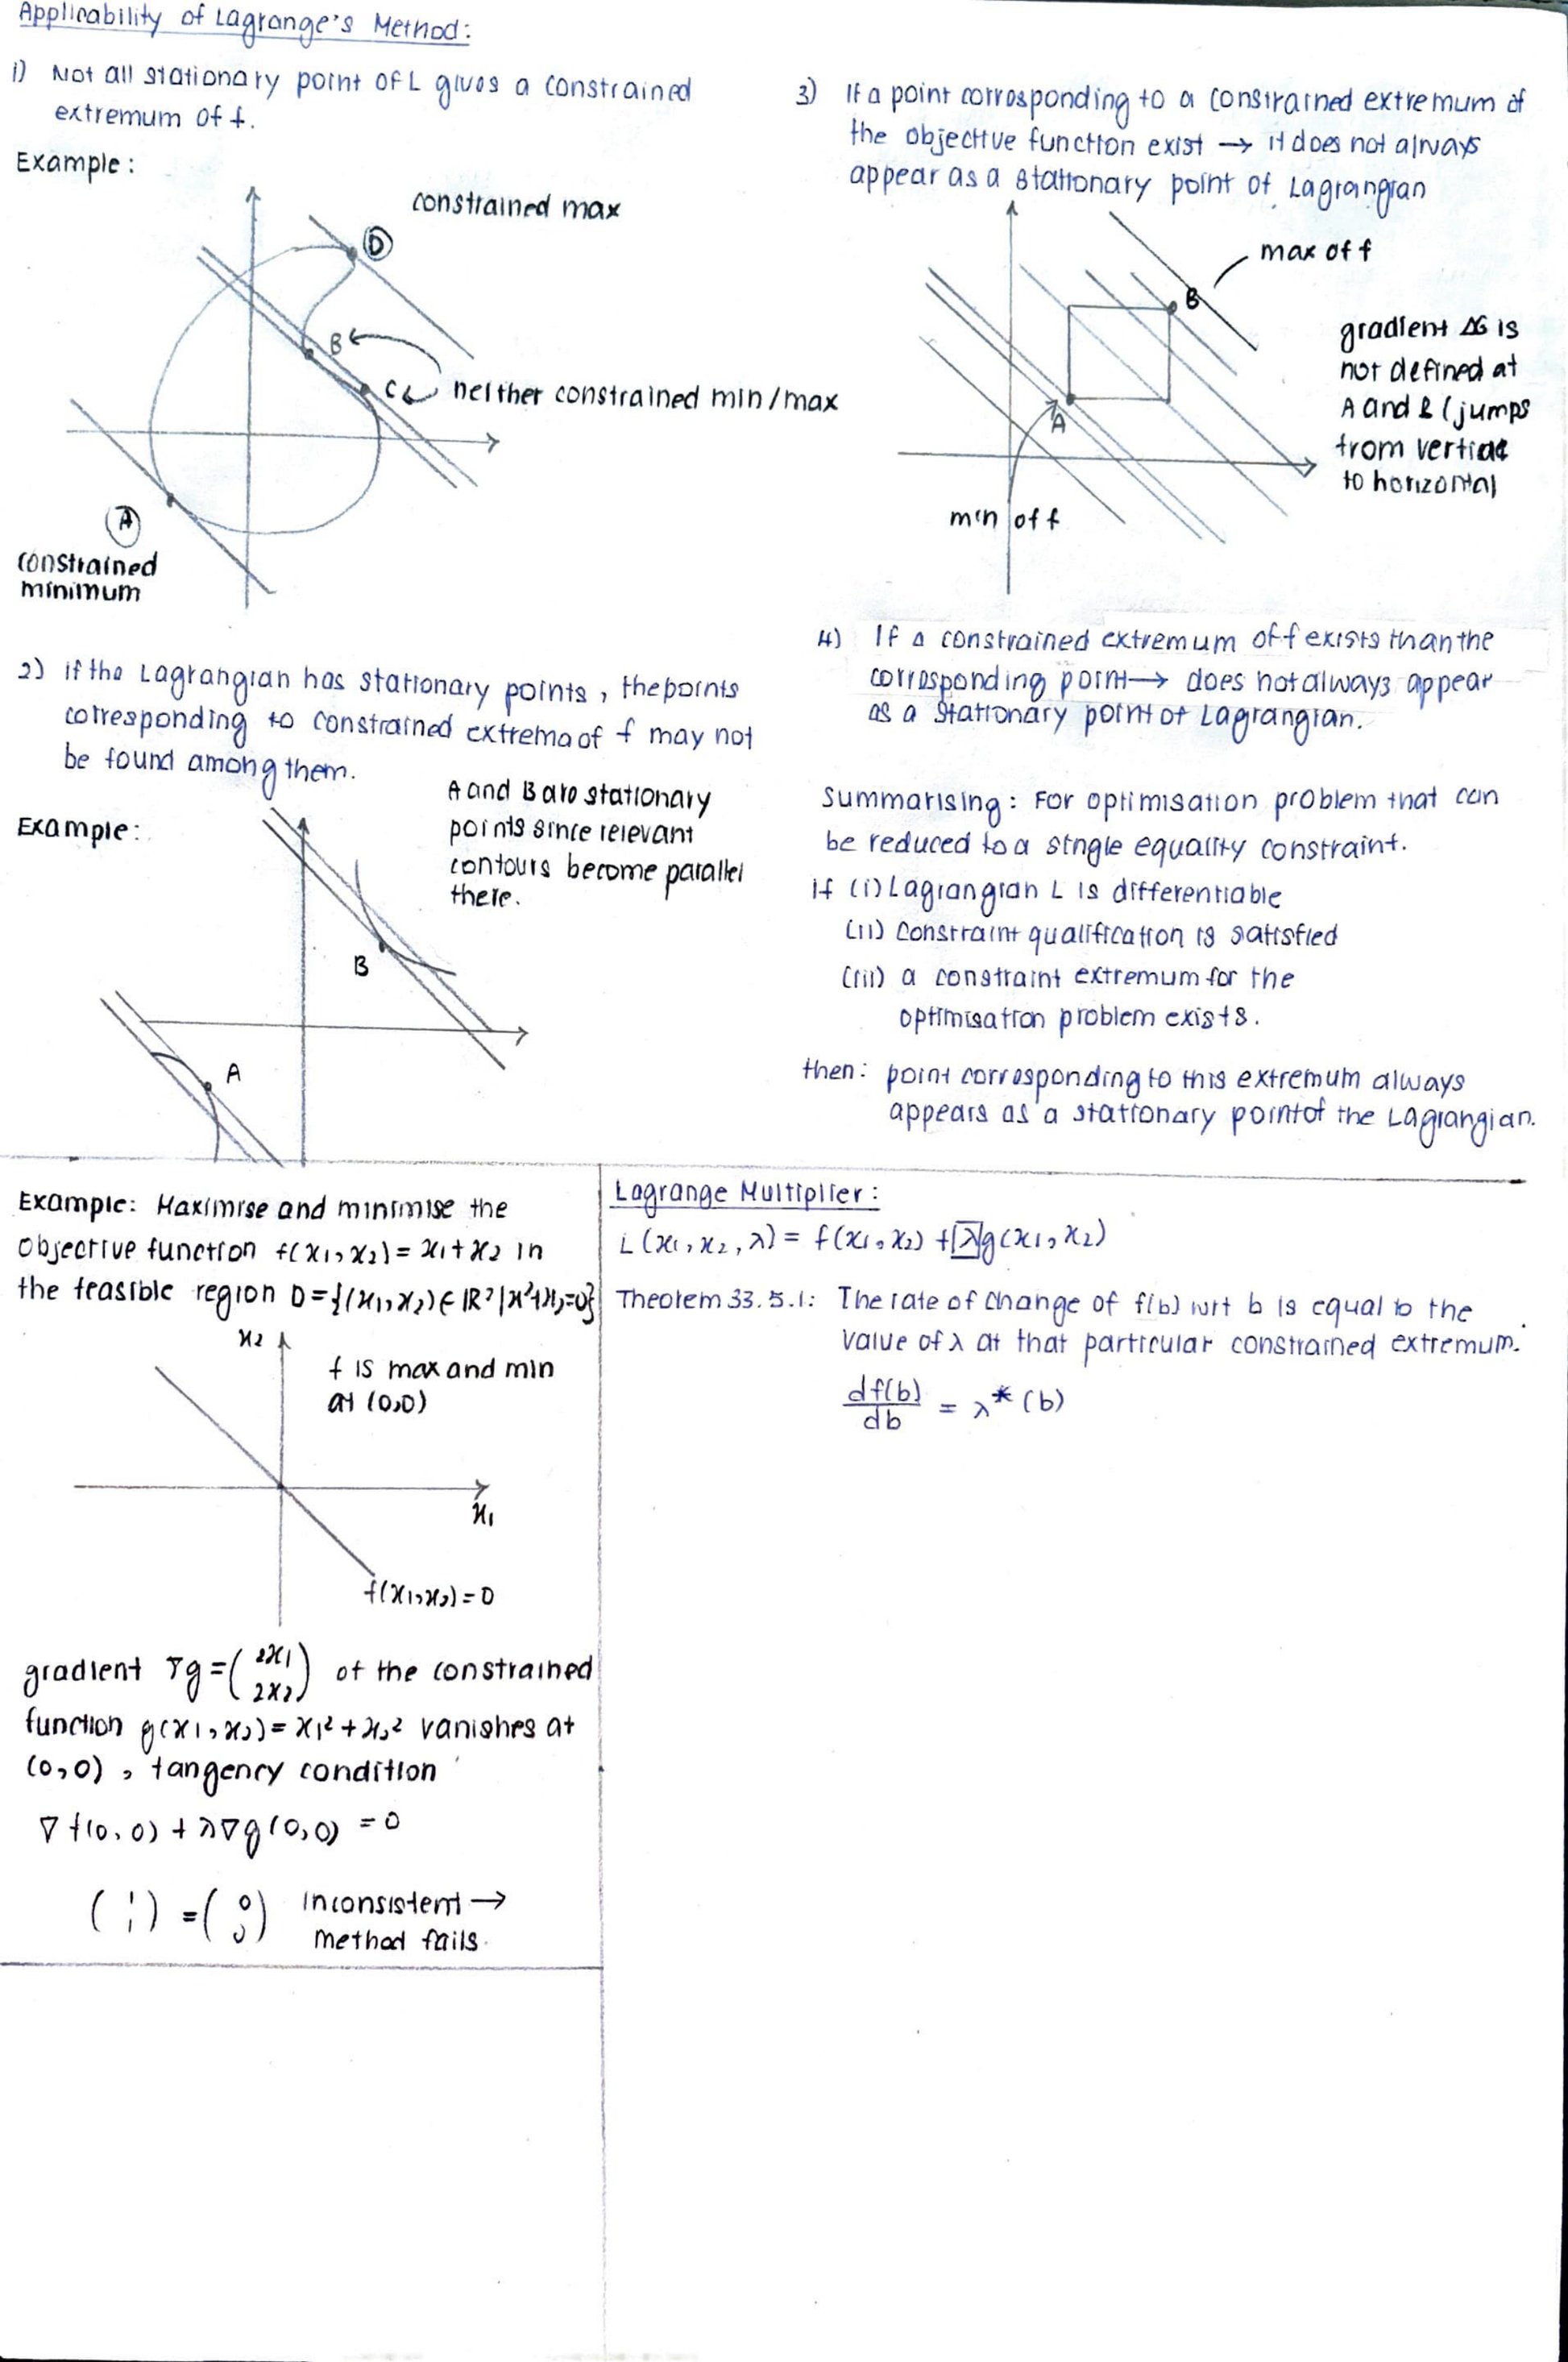 Applicability of Lagrange's Method:
1) Not all stationary point of L gives a constrained
extremum of f.
Example:
constrained max
D
B
C
neither constrained min/max
A
constrained
minimum
2) if the Lagrangian has stationary points, the points
corresponding to constrained extrema of f may not
be found among them.
Example:
A and B are stationary
points since relevant
contours become parallel
there.
B
A
3) If a point corresponding to a constrained extremum of
the objective function exist → it does not always
appear as a stationary point of Lagrangian
max of f
B
A
min of f
gradient ΔG is
not defined at
A and B (jumps
from vertical
to horizontal
4) If a constrained extremum of f exists than the
corresponding point → does not always appear
as a stationary point of Lagrangian.
Summarising: For optimisation problem that can
be reduced to a single equality constraint.
if (i) Lagrangian L is differentiable
(ii) constraint qualification is satisfied
(iii) a constraint extremum for the
optimisation problem exists.
then: point corresponding to this extremum always
appears as a stationary point of the Lagrangian.
Example: Maximise and minimise the
objective function f(x₁,x₂) = x₁+x₂ in
the feasible region D={(x₁,x₂)∈ℝ²|x²+x₂=0}
x₂
f is max and min
at (0,0)
x₁
f(x₁,x₂)=0
gradient ∇g = (2x₁
2x₂) of the constrained
function g(x₁,x₂) = x₁²+x₂² vanishes at
(0,0), tangency condition
∇f(0,0) + λ∇g(0,0) = 0
(1
1) = (0
0) inconsistent →
method fails.
Lagrange Multiplier:
L(x₁,x₂,λ) = f(x₁,x₂) + λg(x₁,x₂)
Theorem 33.5.1: The rate of change of f(b) wrt b is equal to the
value of λ at that particular constrained extremum.
df(b)/db = λ*(b)